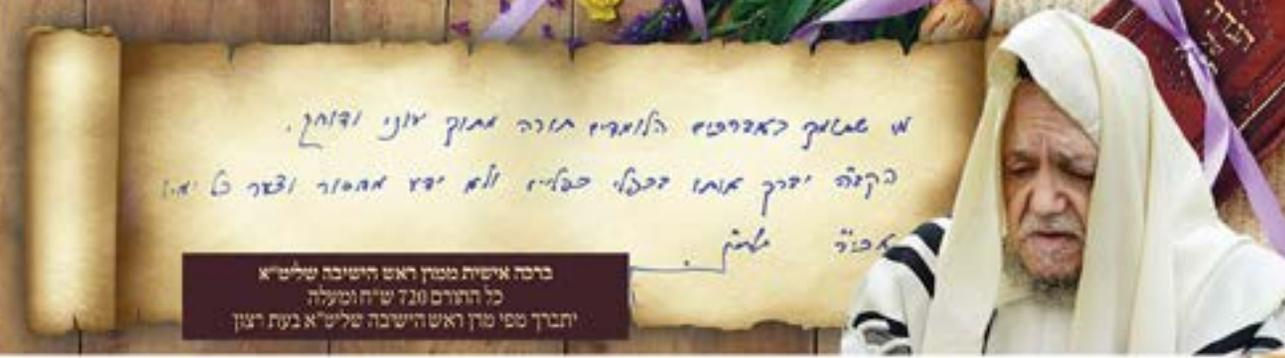 מי שתומך באברכים הלומדים תורה מתוך עוני ודוחק.
הקב"ה יברך אותו בכפלי כפליים ולא ידע מחסור וצער כל ימיו
ברכה אישית ממרן ראש הישיבה שליט"א
כל התורם 720 ש"ח ומעלה
יתברך מפי מרן ראש הישיבה שליט"א בעת רצון
הגדה
של